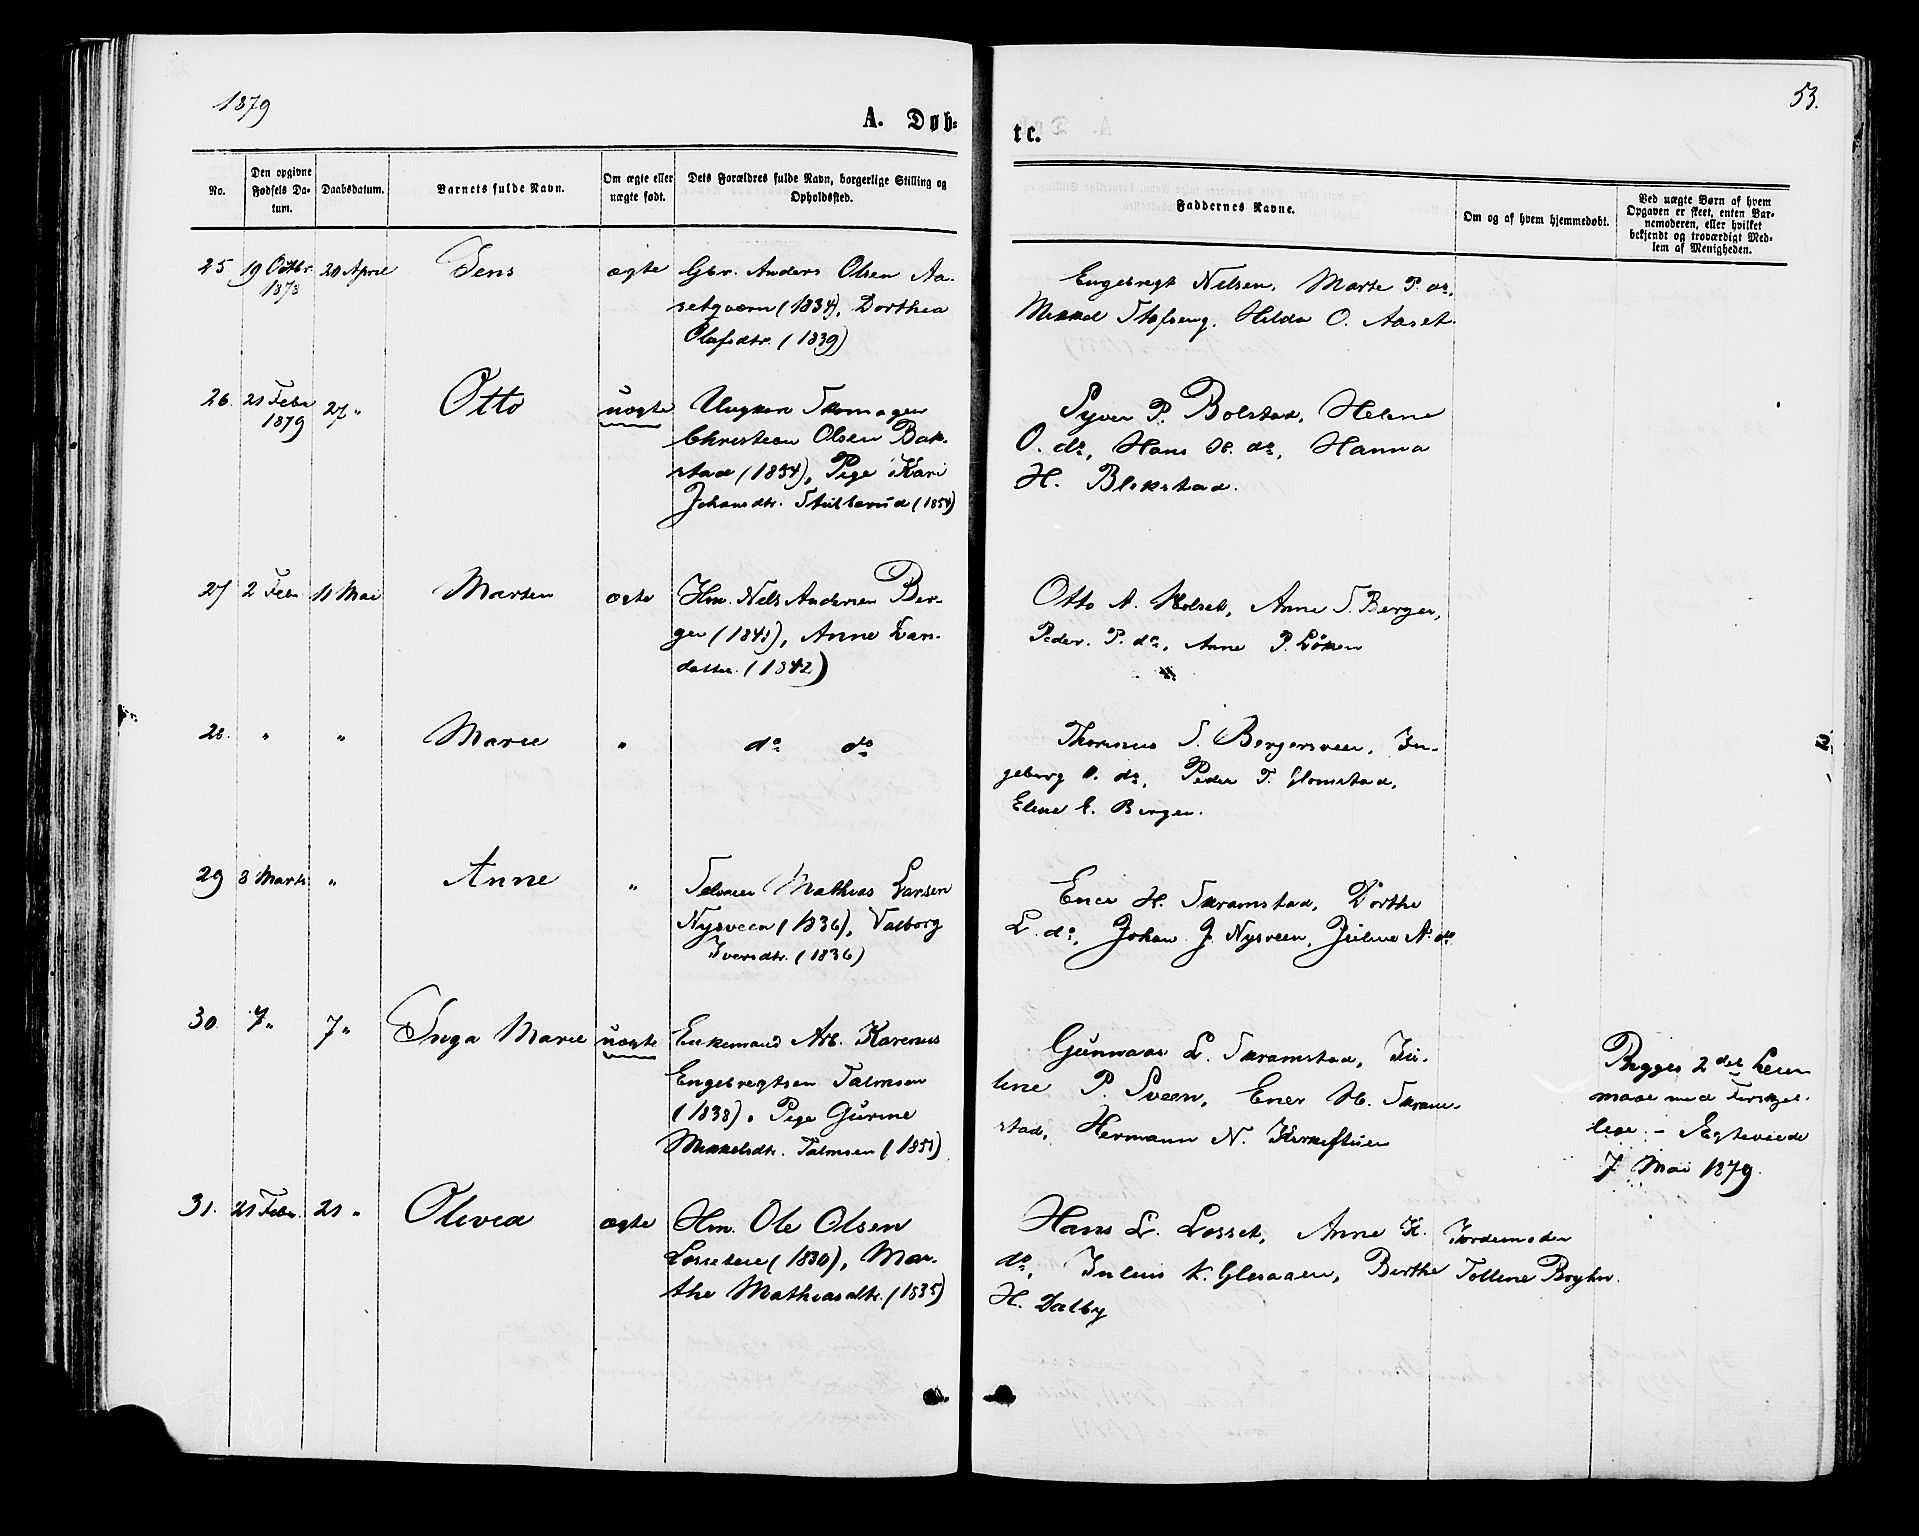 1879
53.
A. Døb-
te.
No.
Den opgivne Fødsels Da-tum.
Daabsdatum.
Barnets fulde Navn.
Om ægte eller uægte født.
Dets Forældres fulde Navn, borgerlige Stilling og Opholdssted.
Faddernes Navne.
Om og af hvem hjemmedøbt.
Ved uægte Børn af hvem Opgaven er skeet, enten Bar-nemoderen, eller hvilket bekjendt og troværdigt Med-lem af Menigheden.
25 19 Octbr 20 April Jens ægte Gbr. Anders Olsen Aa-
1878
setqværn (1834), Dorthea
Olafsdtr. (1839)
Engebregt Nilsen, Marte P. do,
Mikkel Stafseng, Hilda O. Aaset.
26. 21 Febr 27 " Otto uægte Ungkarl Skomager
1879
Christian Olsen Bak-
stad (1854), Pige Kari
Johansdtr. Stubberud (1854)
Syver P. Bolstad, Helene
O. do, Hans H. do, Hanna
H. Blekstad.
27 2 Febr 11 Mai Marten ægte Hm. Nils Andersen Ber-
ger (1843), Anne Lars-
datter. (1842)
Otto A. Holset, Anne S. Berger,
Peder. P. do, Anne P. Löken
28. " " Marie " do do
Thorinus S. Bergersveen, In-
geborg O. do, Peder T. Glomstad,
Elene E. Berger.
29 8 Marts " Anne " Selveier Mathias Larsen
Nysveen (1836), Valborg
Iversdtr. (1836)
Ener H. Skramstad, Dorthe
L. do, Johan J. Nysveen, Juline A. do
30. 7 " 7 " Inga Marie uægte Enkemand Arb. Karenus
Engebregtsen Talmoen
(1838), Pige Gurine
Mikkelsdtr. Talmoen (1853)
Gunnaar L. Skramstad, Ju-
line P. Sveen, Ener H. Skram-
stad, Hermann N. Kirkestuen
Begges 2det Leier
maal med Forskjel-
lige. - Ægteviede
7 Mai 1879.
31. 21 Febr. 21 " Olivia ægte Hm. Ole Olsen
Losseteie (1830), Mar-
the Mathiasdtr. (1835)
Hans L. Losset, Anne K.
do, Julius K. Glesaaen, Berthe
H. Dalby
Jordemoder
Tolline Bryhn.